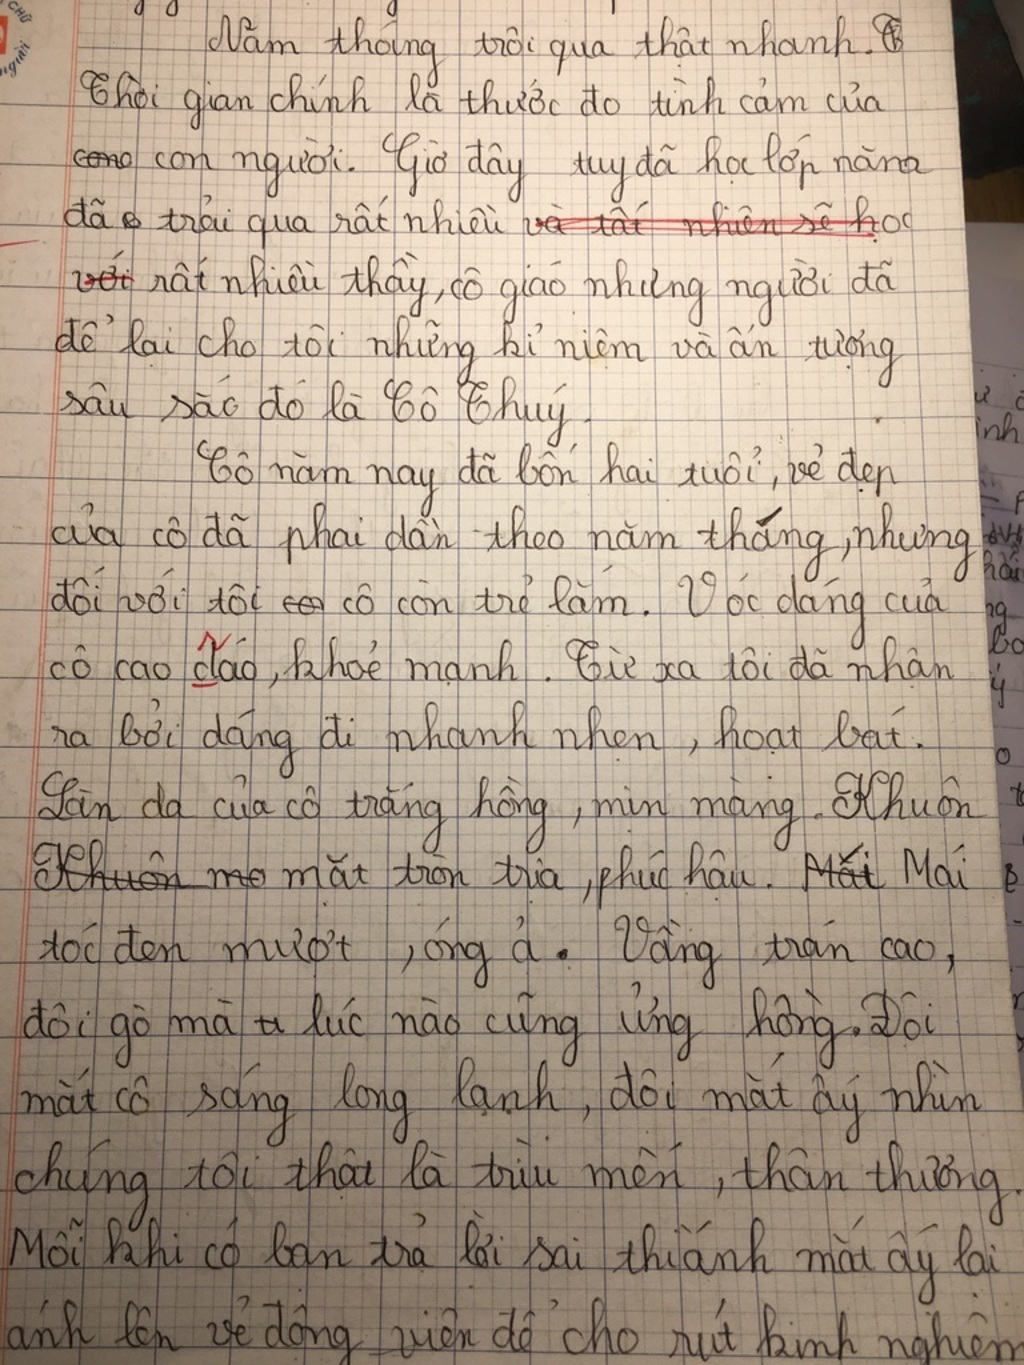 CHỮ
người
Năm tháng trôi qua thật nhanh. T
Thời gian chính là thước đo tình cảm của
cong con người. Giờ đây tuy đã học lớp năm
đã trải qua rất nhiều và tất nhiên sẽ học
với rất nhiều thầy, cô giáo nhưng người đã
để lại cho tôi những kỉ niệm và ấn tượng
sâu sắc đó là Cô Thuý.
Cô năm nay đã bốn hai tuổi, vẻ đẹp
của cô đã phai dần theo năm tháng, nhưng
đối với tôi cô còn trẻ lắm. Vóc dáng của
cô cao dáo, khoẻ mạnh. Từ xa tôi đã nhận
ra bởi dáng đi nhanh nhẹn, hoạt bát.
Làn da của cô trắng hồng, mịn màng. Khuôn
Khuôn mo mặt tròn trịa, phúc hậu. Mắt Mái
tóc đen mượt, óng ả. Vầng trán cao,
đôi gò má lúc nào cũng ửng hồng. Đôi
mắt cô sáng long lanh, đôi mắt ấy nhìn
chúng tôi thật là trìu mến, thân thương.
Mỗi khi có bạn trả lời sai thì ánh mắt ấy lại
ánh lên vẻ động viên để cho rút kinh nghiệm